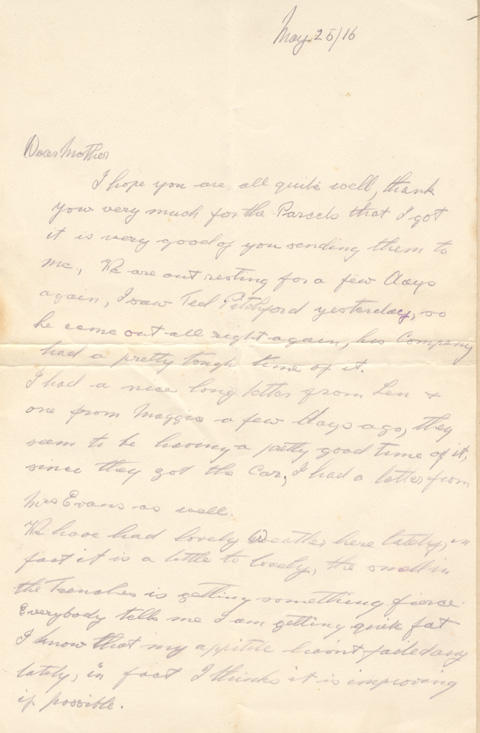 May 25/16
Dear Mother
I hope you are all quite well, thank
you very much for the Parcels that I got
it is very good of you sending them to
me, We are out resting for a few days
again, I saw Ted Pitchford yesterday, so
he came out all right again, his Company
had a pretty tough time of it.
I had a nice long letter from Len &
one from Maggie a few days ago, they
seem to be having a pretty good time of it,
since they got the Car, I had a letter from
Mrs Evans as well.
We have had lovely Weather here lately, in
fact it is a little to lovely, the smell in
the Trenches is getting something fierce.
Everybody tells me I am getting quite fat
I know that my appitite hasn't failed any
lately, in fact I think it is improving
if possible.